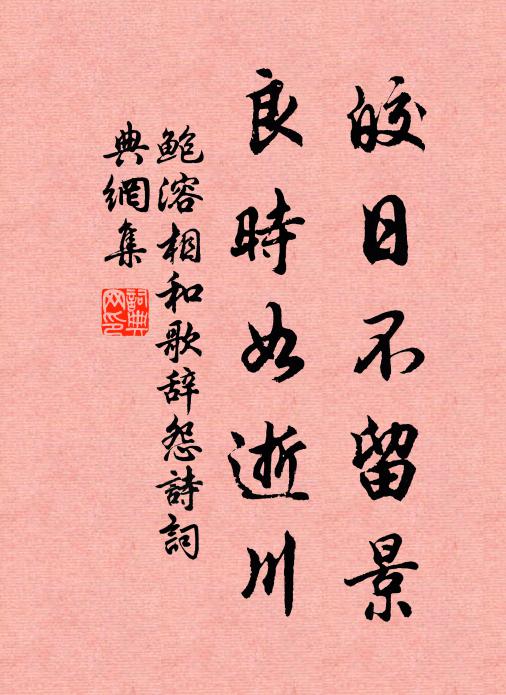 皎日不留景
良時如逝川
鲍溶相和歌辞怨詩詞
典網集
詞典
网印